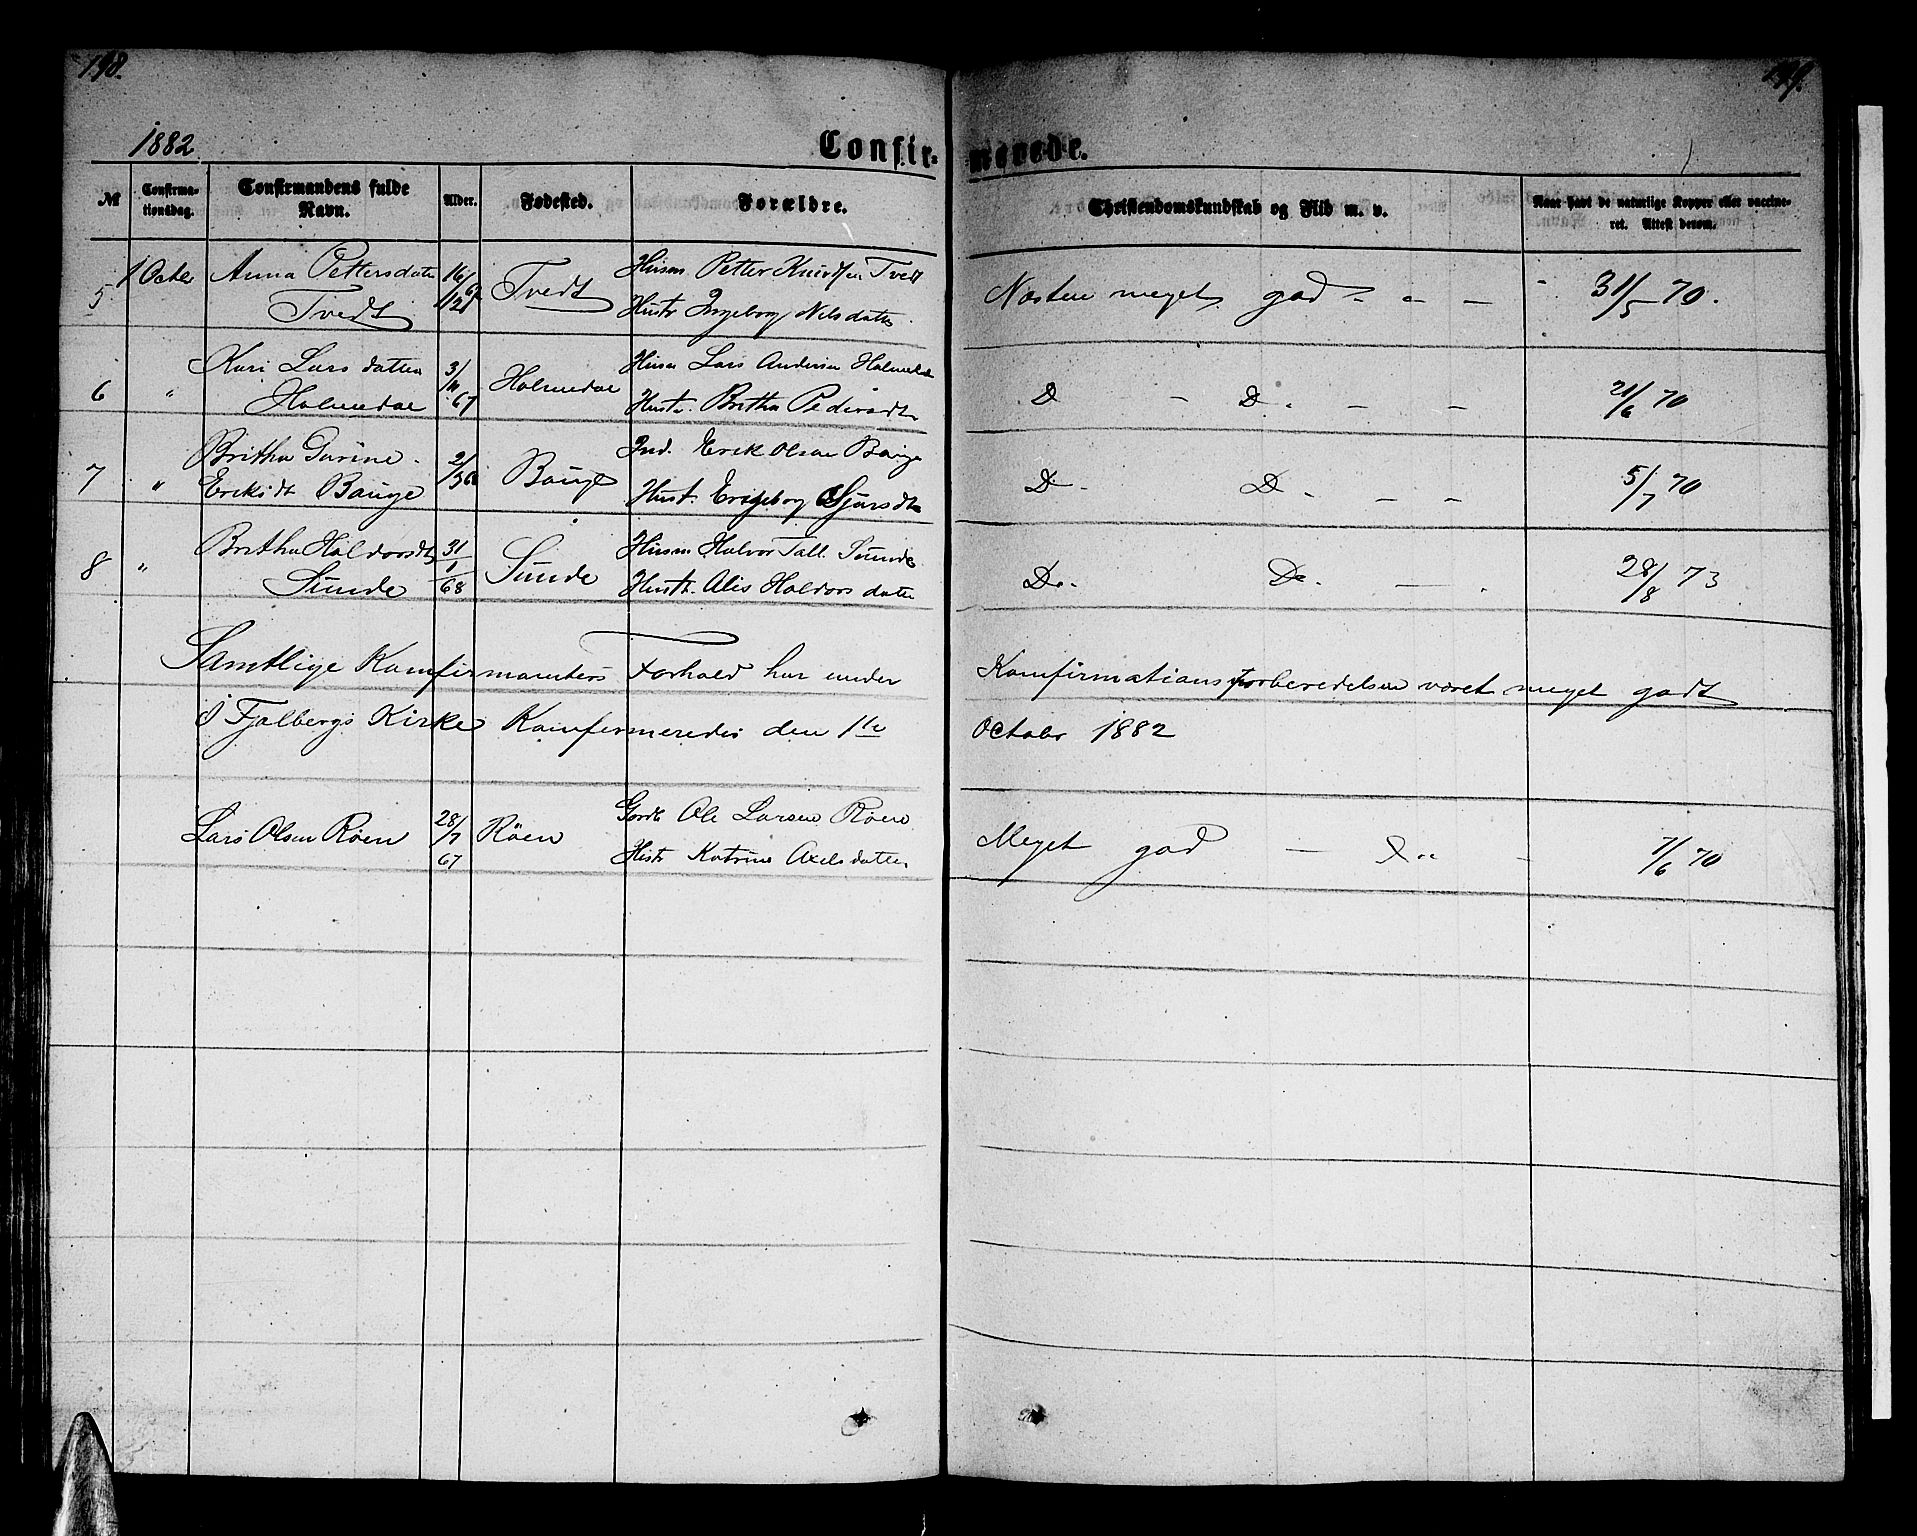 198.
1882
Confir-
merede.
№
Confirma-
tionsdag.
Confirmandens fulde
Navn.
Alder.
Fødested.
Forældre.
Christendomskundskab og Flid m. v.
Naar havt de naturlige Kopper eller vaccine-
ret. Attest derom.
5 1 Octer Anna Pettersdatter 16/12 67 Tvedt Husm. Petter Knudsen Tvedt
Tvedt Hustr Ingeborg Nilsdatter
Næsten meget god - - - 31/5 70.
6 " Kari Larsdatter 3/10 67 Holmedal Husm Lars Andersen Holmedal
Holmedal Hustr. Britha Pedersdtr
D - D. - - 21/6 70
7 " Britha Gurine Bauge Ind. Erik Olsen Bauge
Eriksdt Bauge Hust. Ingeborg Sjursdtr
D - D. - - 5/7 70
8 " Britha Haldorsdtr 31/1 68 Sunde Husm Halvor Tall. Sunde
Sunde Hustr. Alis Haldorsdatter
Do. Do. - - 28/8 73
Samtlige Konfirmanters Forhold har under Konfirmationsforberedelsen været meget godt
I Fjelbergs Kirke Konfirmeredes den 1te October 1882
Lars Olsen Røen 28/7 67 Røen Gordb Ole Larsen Røen
Hustr Katrine Axelsdatter
Meget god - D" - 7/6 70